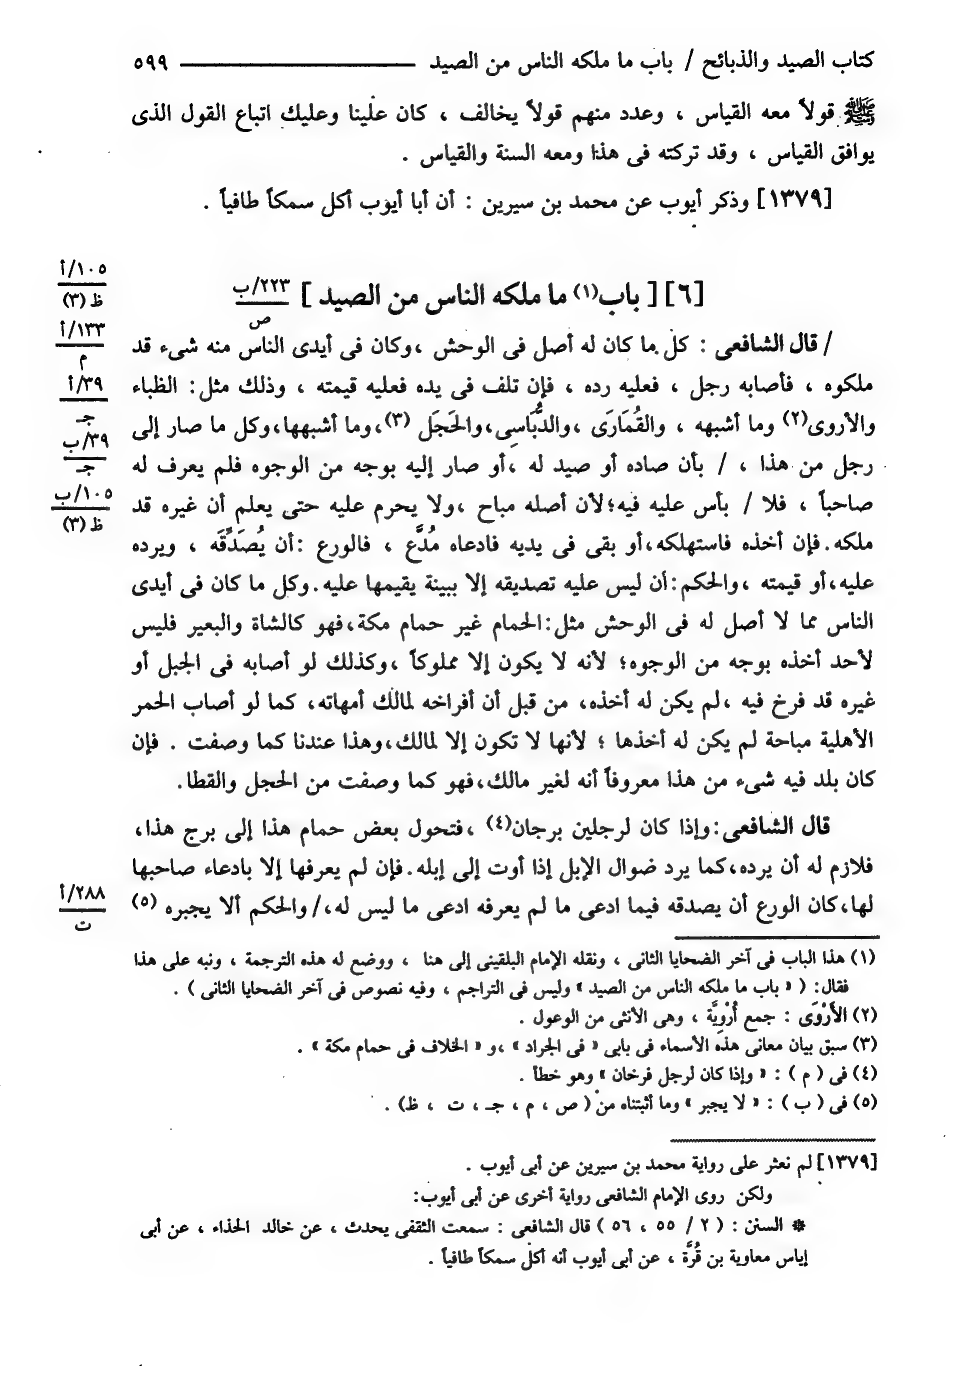 كتاب الصيد والذبائح / باب ما ملكه الناس من الصيد ــــــــــــــــ ٥٩٩
ﷺ قولاً معه القياس ، وعدد منهم قولاً يخالف ، كان علينا وعليك اتباع القول الذى
يوافق القياس ، وقد تركته فى هذا ومعه السنة والقياس .
[١٣٧٩] وذكر أيوب عن محمد بن سيرين : أن أبا أيوب أكل سمكاً طافياً .
[٦] [ باب(١) ما ملكه الناس من الصيد ]
٢٢٣/ب
ص
١٠٥/أ
ظ (٣)
١٣٣/أ
م
٣٩/أ
جـ
٣٩/ب
جـ
١٠٥/ب
ظ (٣)
/ قال الشافعى : كل ما كان له أصل فى الوحش ،وكان فى أيدى الناس منه شىء قد
ملكوه ، فأصابه رجل ، فعليه رده ، فإن تلف فى يده فعليه قيمته ، وذلك مثل: الظباء
والأروى(٢) وما أشبهه ، والقُمَارَى ،والدُّبَاسِى،والحَجَل (٣)،وما أشبهها،وكل ما صار إلى
رجل من هذا ، / بأن صاده أو صيد له ،أو صار إليه بوجه من الوجوه فلم يعرف له
صاحباً ، فلا / بأس عليه فيه؛لأن أصله مباح ،ولا يحرم عليه حتى يعلم أن غيره قد
ملكه. فإن أخذه فاستهلكه،أو بقى فى يديه فادعاه مُدَّع ، فالورع :أن يُصَدِّقَه ، ويرده
عليه،أو قيمته ،والحكم:أن ليس عليه تصديقه إلا ببينة يقيمها عليه.وكل ما كان فى أيدى
الناس مما لا أصل له فى الوحش مثل:الحمام غير حمام مكة،فهو كالشاة والبعير فليس
لأحد أخذه بوجه من الوجوه؛ لأنه لا يكون إلا مملوكاً ،وكذلك لو أصابه فى الجبل أو
غيره قد فرخ فيه ،لم يكن له أخذه، من قبل أن أفراخه لمالك أمهاته، كما لو أصاب الحمر
الأهلية مباحة لم يكن له أخذها ؛ لأنها لا تكون إلا لمالك،وهذا عندنا كما وصفت . فإن
كان بلد فيه شىء من هذا معروفاً أنه لغير مالك،فهو كما وصفت من الحجل والقطا.
قال الشافعى:وإذا كان لرجلين برجان(٤) ،فتحول بعض حمام هذا إلى برج هذا،
فلازم له أن يرده،كما يرد ضوال الإبل إذا أوت إلى إبله.فإن لم يعرفها إلا بادعاء صاحبها
لها،كان الورع أن يصدقه فيما ادعى ما لم يعرفه ادعى ما ليس له،/والحكم ألا يجبره (٥)
٢٨٨/أ
ت
(١) هذا الباب فى آخر الضحايا الثانى ، ونقله الإمام البلقينى إلى هنا ، ووضع له هذه الترجمة ، ونبه على هذا
فقال: ( « باب ما ملكه الناس من الصيد » وليس فى التراجم ، وفيه نصوص فى آخر الضحايا الثانى ) .
(٢) الأَرْوَى : جمع أُرْوِيَّة ، وهى الأنثى من الوعول .
(٣) سبق بيان معانى هذه الأسماء فى بابى « فى الجراد » ،و « الخلاف فى حمام مكة » .
(٤) فى ( م ) : « وإذا كان لرجل فرخان » وهو خطأ .
(٥) فى ( ب ) : « لا يجبر » وما أثبتناه من ( ص ، م ، جـ ، ت ، ظ) .
[١٣٧٩] لم نعثر على رواية محمد بن سيرين عن أبى أيوب .
ولكن روى الإمام الشافعى رواية أخرى عن أبى أيوب:
* السنن : ( ٢ / ٥٥ ، ٥٦ ) قال الشافعى : سمعت الثقفى يحدث ، عن خالد الحذاء ، عن أبى
إياس معاوية بن قُرَّة ، عن أبى أيوب أنه أكل سمكاً طافياً .